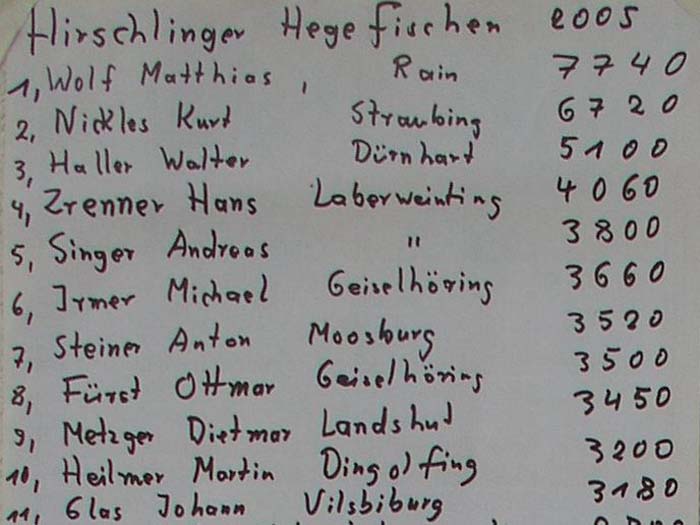 Hirschlinger Hegefischen 2005
1, Wolf Matthias, Rain 7740
2, Nickles Kurt Straubing 6720
3, Haller Walter Dürnhart 5100
4, Zrenner Hans Laberweinting 4060
5, Singer Andreas " 3800
6, Irmer Michael Geiselhöring 3660
7, Steiner Anton Moosburg 3520
8, Fürst Ottmar Geiselhöring 3500
9, Metzger Dietmar Landshut 3450
10, Heilmer Martin Dingolfing 3200
11, Glas Johann Vilsbiburg 3180